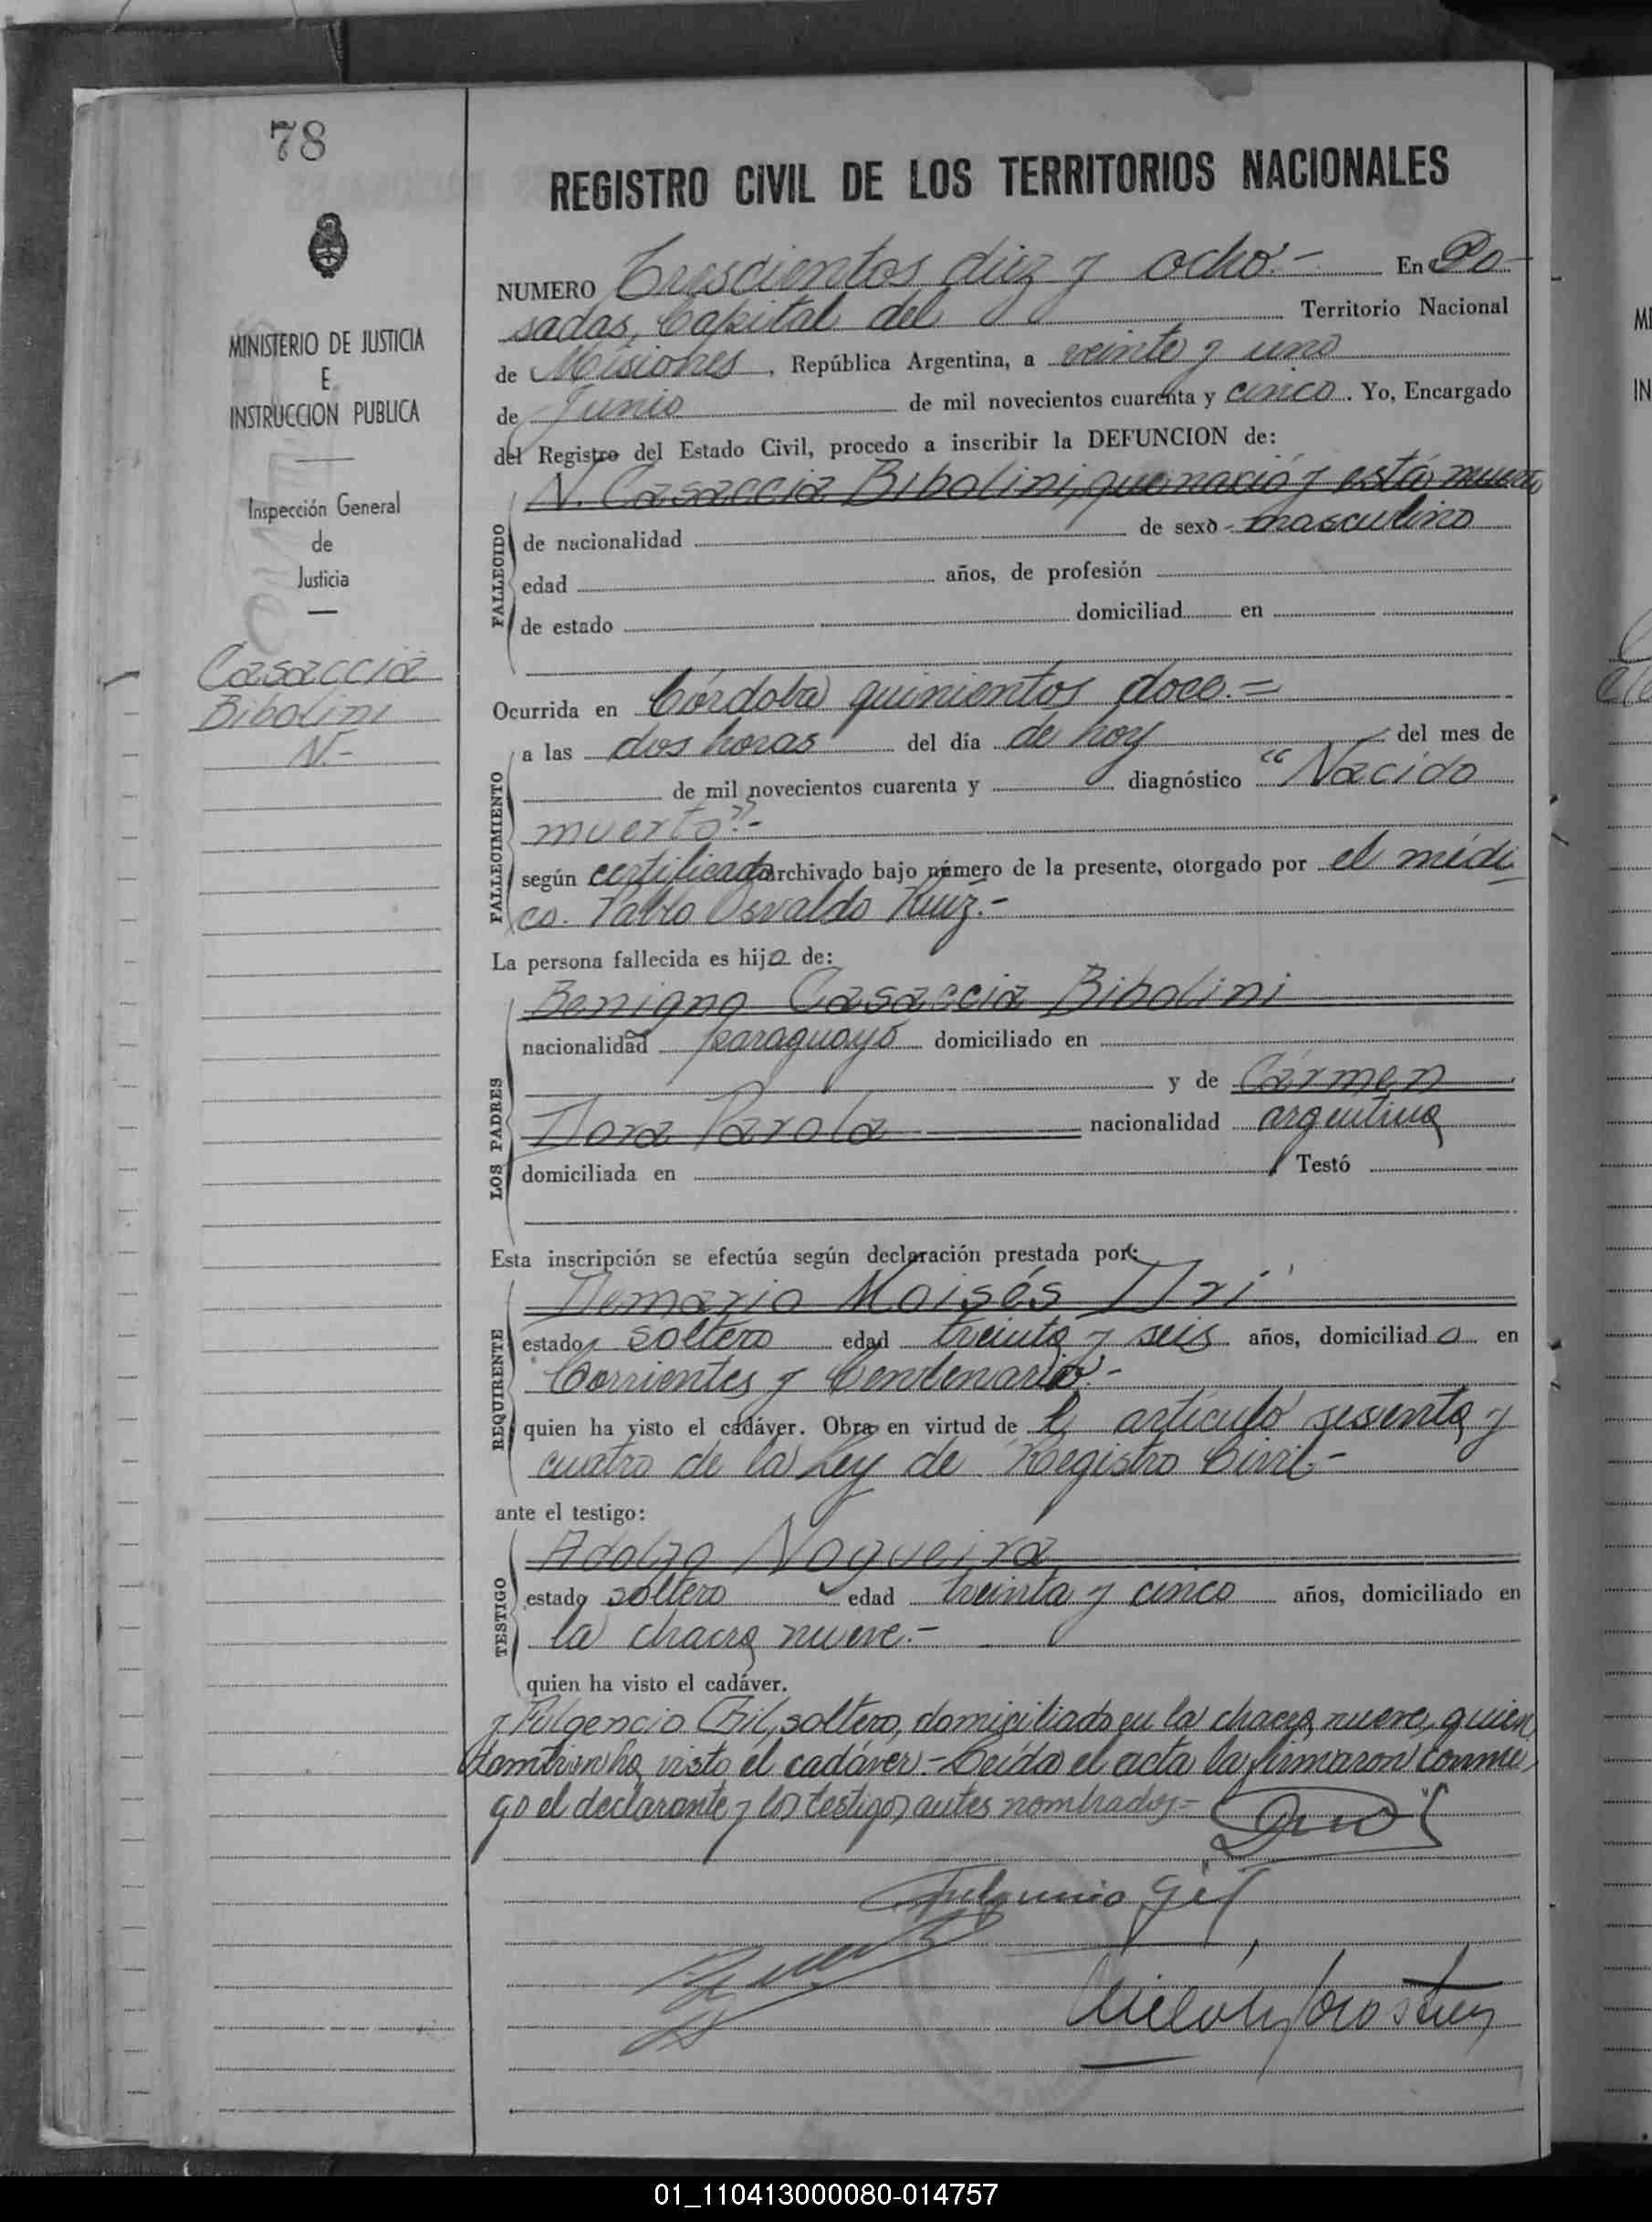 78
MINISTERIO DE JUSTICIA
E
INSTRUCCION PUBLICA
Inspección General
de
Justicia
Casaccia
Bibolini
N.-
REGISTRO CIVIL DE LOS TERRITORIOS NACIONALES
NUMERO Trescientos diez y ocho.- En Po-
sadas, Capital del Territorio Nacional
de Misiones, República Argentina, a veinte y uno
de Junio de mil novecientos cuarenta y cinco. Yo, Encargado
del Registro del Estado Civil, procedo a inscribir la DEFUNCION de:
N. Casaccia Bibolini, que nació y está muerto
FALLECIDO
de nacionalidad de sexo masculino
edad años, de profesión
de estado domiciliad en
Ocurrida en Córdoba quinientos doce.=
FALLECIMIENTO
a las dos horas del día de hoy del mes de
de mil novecientos cuarenta y diagnóstico "Nacido
muerto".-
según certificado archivado bajo número de la presente, otorgado por el médi-
co. Pablo Osvaldo Ruiz.-
La persona fallecida es hijo de:
LOS PADRES
Benigno Casaccia Bibolini
nacionalidad paraguayo domiciliado en
y de Cármen
Dora Parola nacionalidad argentina
domiciliada en Testó
Esta inscripción se efectúa según declaración prestada por:
REQUIRENTE
Moisés
estado soltero edad treinta y seis años, domiciliado en
Corrientes y Centenario.-
quien ha visto el cadáver. Obra en virtud de l artículo sesenta y
cuatro de la Ley de Registro Civil.-
ante el testigo:
TESTIGO
Adolfo Nogueira
estado soltero edad treinta y cinco años, domiciliado en
la chacra nueve.-
quien ha visto el cadáver.
y Fulgencio Gil, soltero, domiciliado en la chacra nueve, quien
tambien ha visto el cadáver.- Leída el acta la firmaron conmi-
go el declarante y los testigos antes nombrados=
Fulgencio Gil
01_110413000080-014757